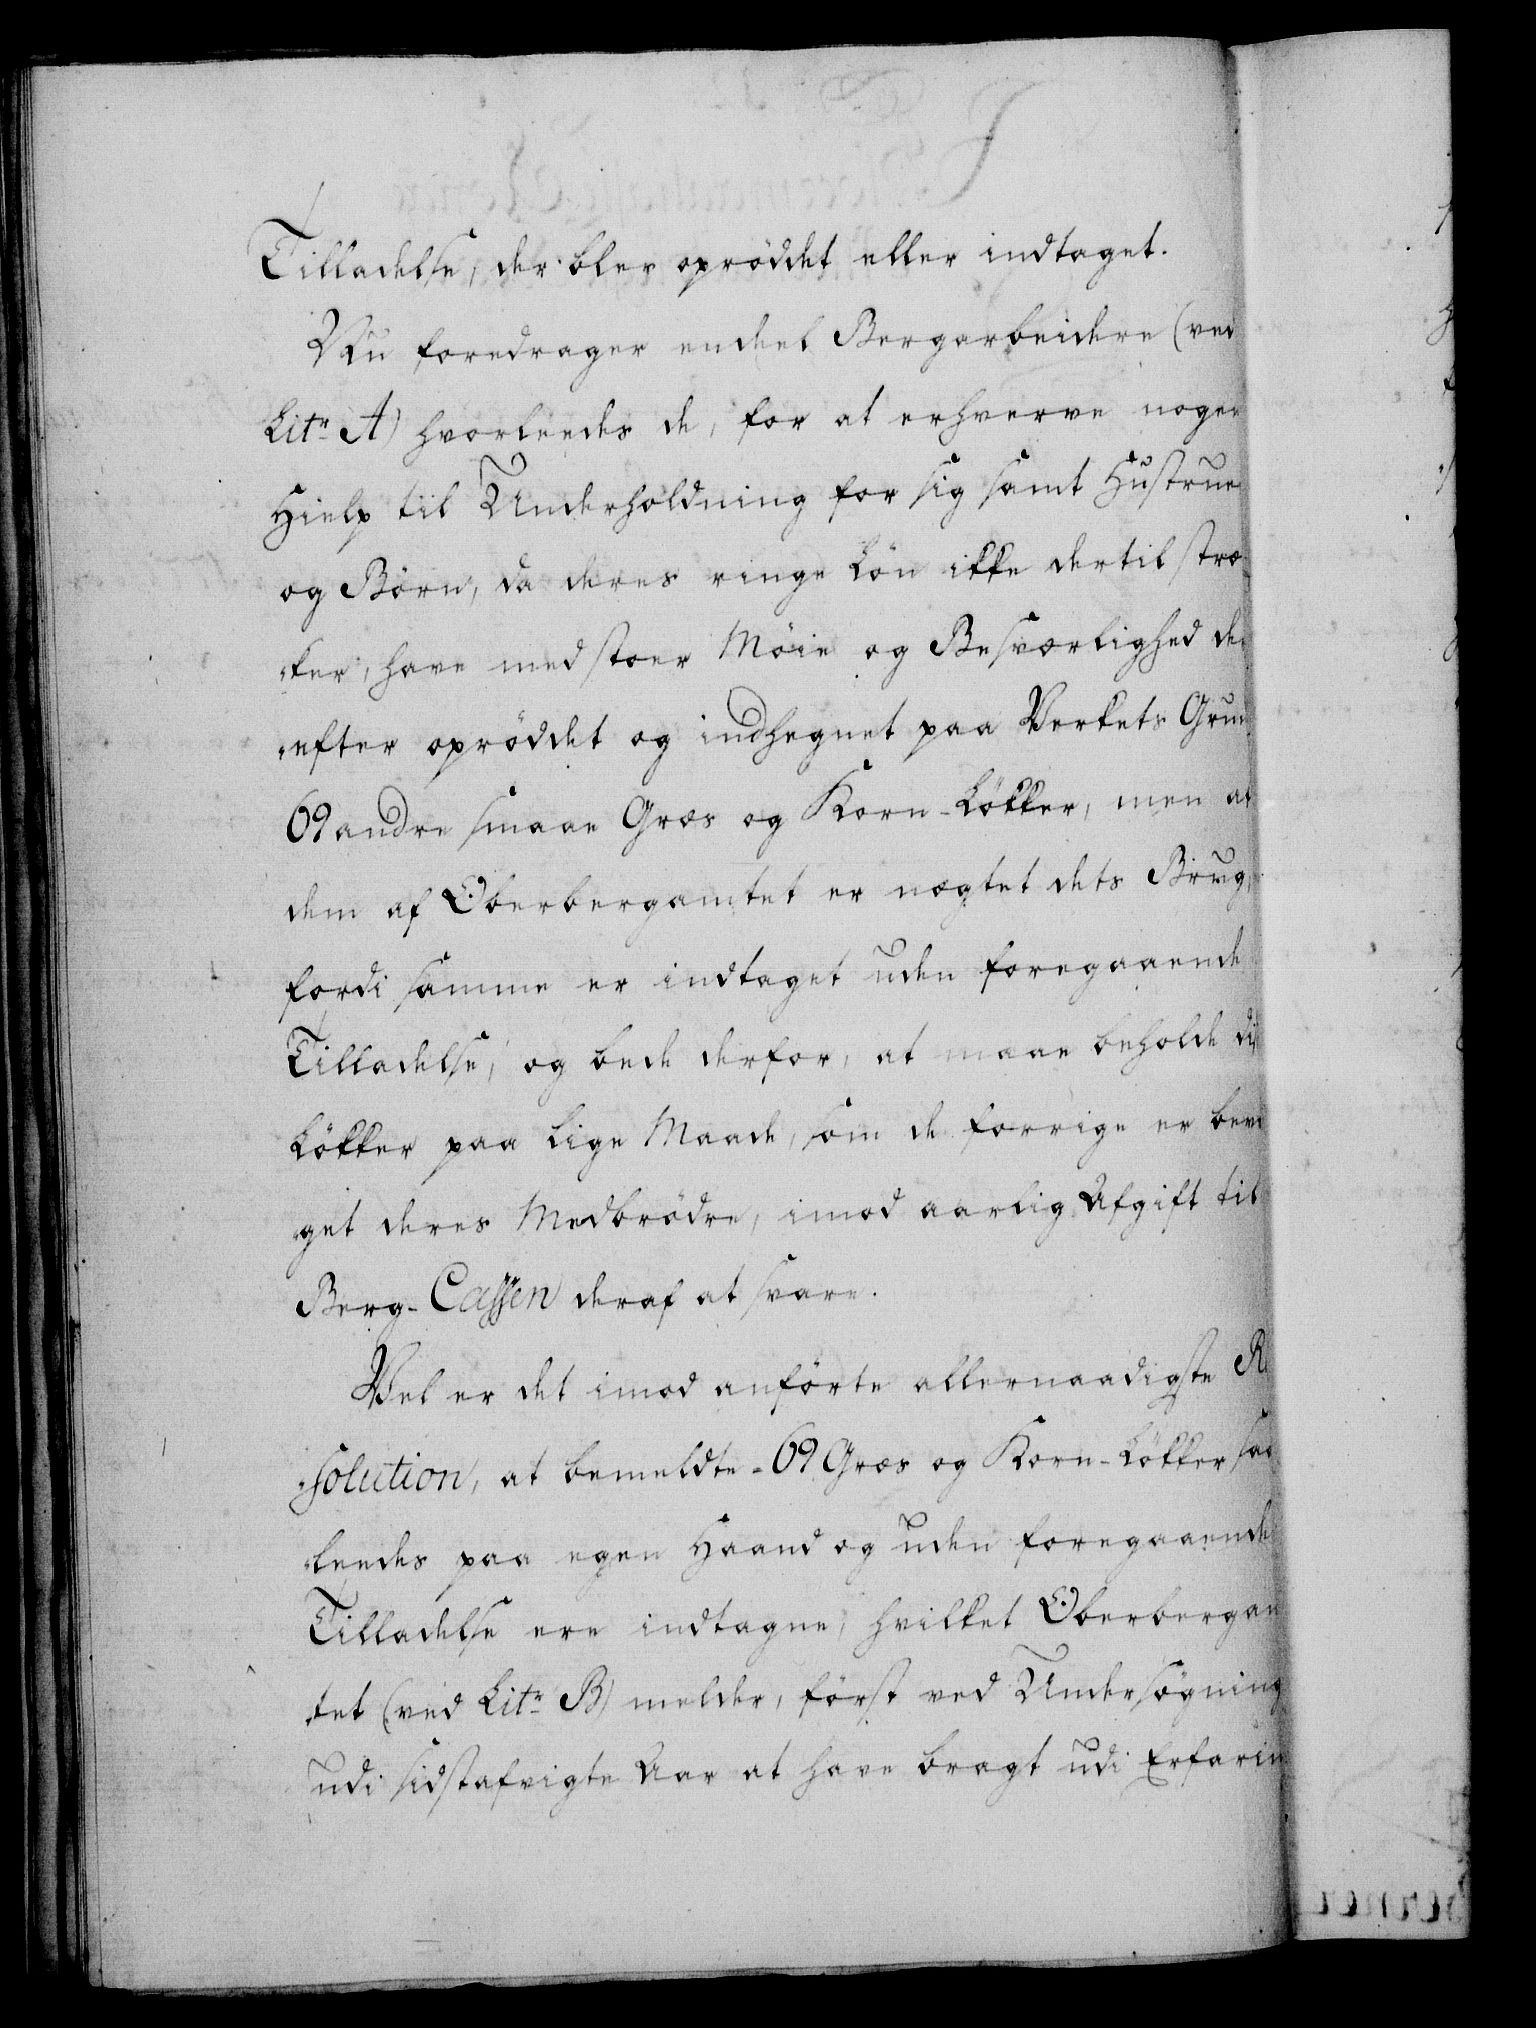 Tilladelse, der blev oprøddet eller indtaget.
Nu foredrager endeel Bergarbeidere (ved
Litr A) hvorleedes de, for at erhverve nogen
Hielp til Underholdning for sig samt Hustrue
og Børn, da deres ringe Løn ikke dertil stræ
ker, have med stoer Møie og Besværlighed der
efter oprøddet og indhegnet paa Verkets Grund
69 andre smaae Græs og Korn-Løkker, men at
dem af Oberbergamtet er nægtet dets Brug,
fordi samme er indtaget uden foregaaende
Tilladelse, og bede derfor, at maae beholde di
Løkker paa lige Maade, som de forrige er bevil
get deres Medbrødre, imod aarlig Afgift til
Berg-Cassen deraf at svare.
Vel er det imod anførte allernaadigste Re
solution, at bemeldte 69 Græs og Korn-Løkker saa
leedes paa egen Haand og uden foregaaende
Tilladelse ere indtagne, hvilket Oberbergam
tet (ved Litr B) melder, først ved Undersøgning
udi sidstafvigte Aar at have bragt udi Erfarin